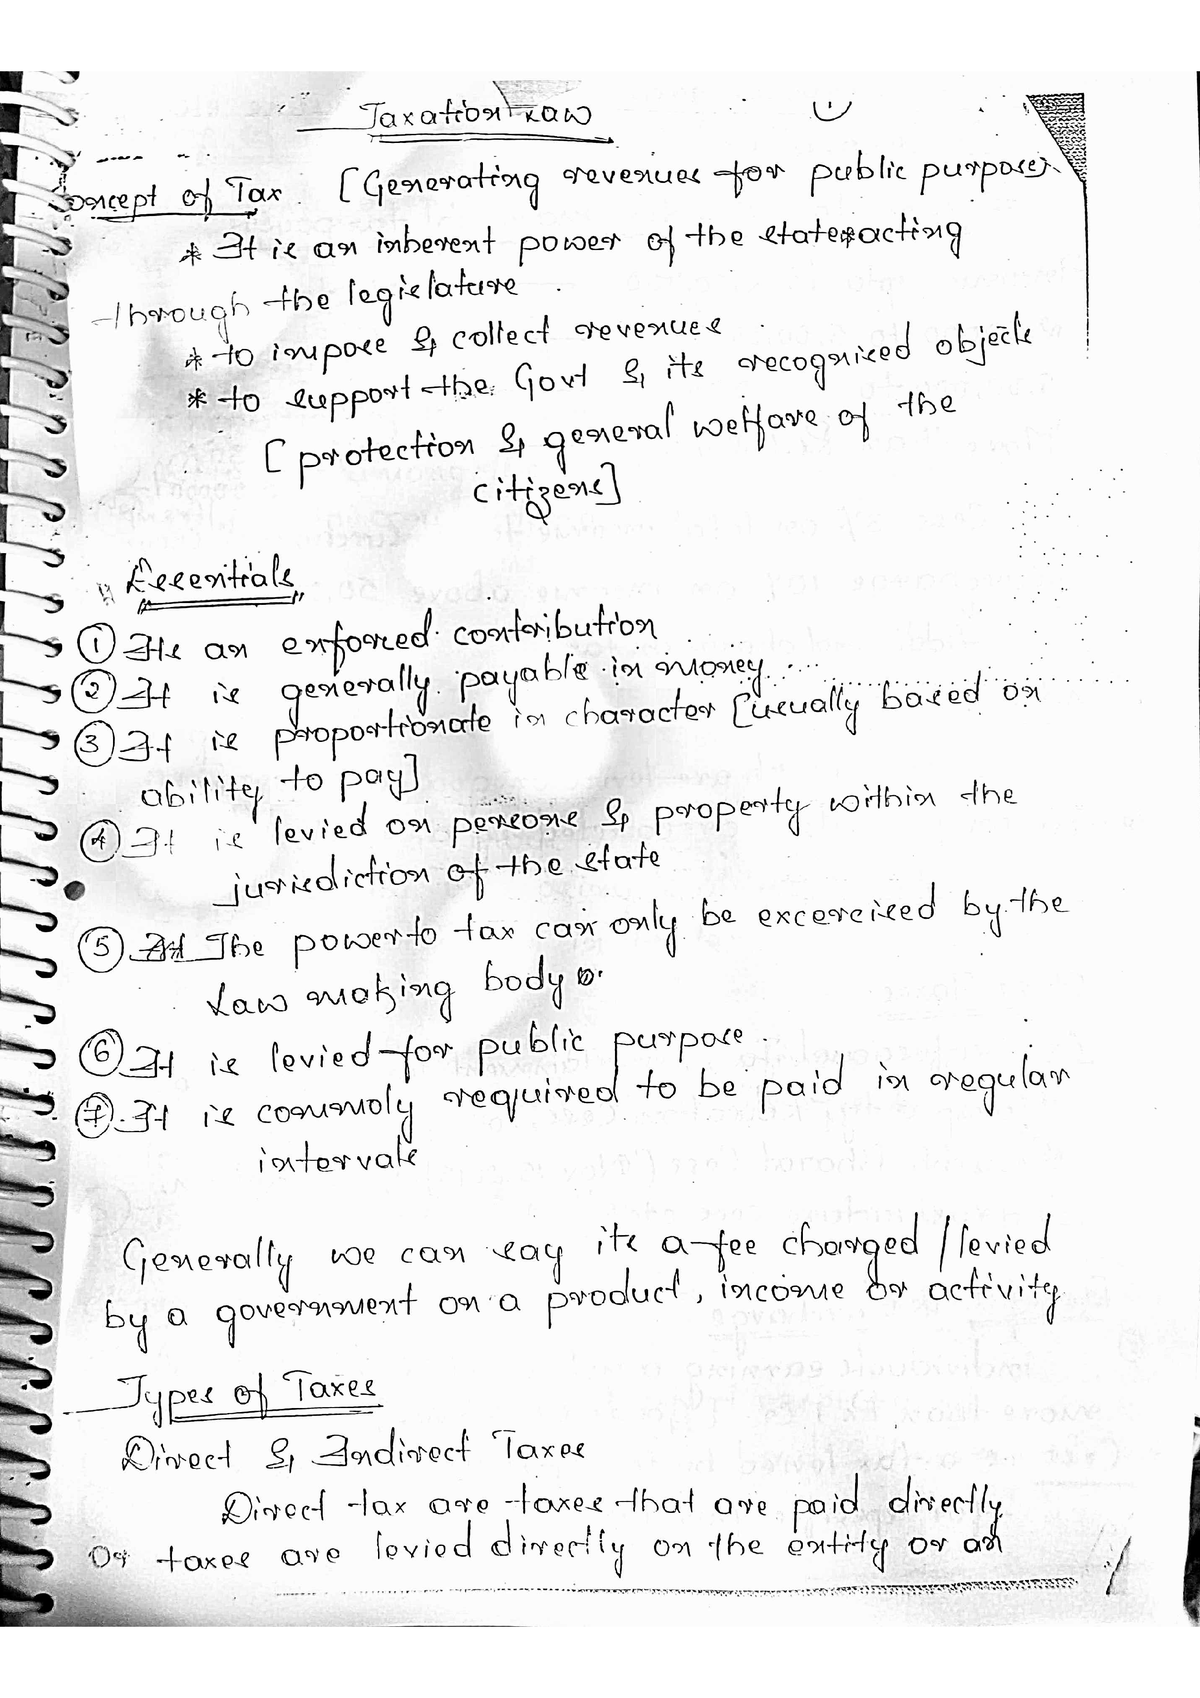 Taxation Law
1
Concept of Tax. [Generating revenues for public purpose].
* It is an inherent power of the state acting
through the legislature.
* to impose & collect revenues.
* to support the Govt & its recognised objects
[protection & general welfare of the
citizens]
Essentials
① Its an enforced contribution
② It is generally payable in money.
③ It is proportionate in character [usually based on
ability to pay]
④ It is levied on persons & property within the
jurisdiction of the state
⑤ The power to tax can only be excercised by the
Law making body
⑥ It is levied for public purpose.
⑦. It is commoly required to be paid in regular
intervals
Generally we can say its a fee charged / levied
by a government on a product, income or activity
Types of Taxes
Direct & Indirect Taxes
Direct tax are taxes that are paid directly
or taxes are levied directly on the entity or an